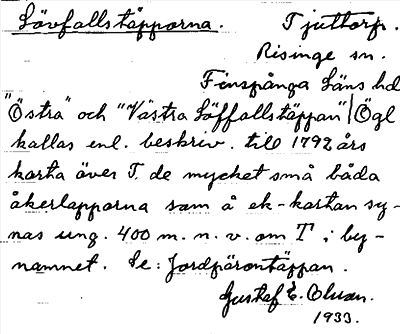 Lövfallstäpporna. Tjuttorp.
Risinge sn.
Finspånga Läns hd
"Östra" och "Västra Löffallstäppan" Ögl
kallas enl. beskriv. till 1792 års
karta över T. de mycket små båda
åkerlapparna som å ek-kartan sy-
nas ung. 400 m. n. v. om T i by-
namnet. Se: Jordpärontäppan.
Gustaf E. Olsson.
1933.